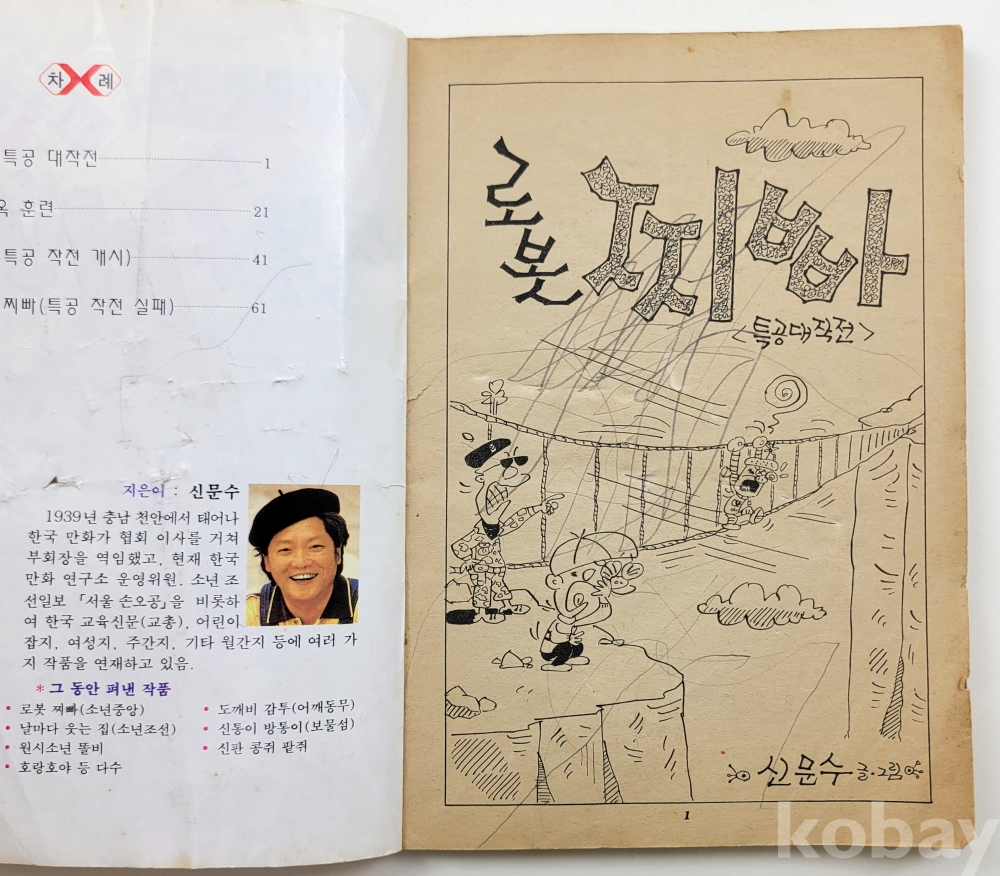 차 례
특공 대작전 1
훈련 21
특공 작전 개시) 41
찌빠(특공 작전 실패) 61
지은이 : 신문수
1939년 충남 천안에서 태어나
한국 만화가 협회 이사를 거쳐
부회장을 역임했고, 현재 한국
만화 연구소 운영위원. 소년 조
선일보 「서울 손오공」을 비롯하
여 한국 교육신문(교총), 어린이
잡지, 여성지, 주간지, 기타 월간지 등에 여러 가
지 작품을 연재하고 있음.
* 그 동안 펴낸 작품
• 로봇 찌빠(소년중앙)
• 날마다 웃는 집(소년조선)
• 원시소년 똘비
• 호랑호야 등 다수
• 도깨비 감투(어깨동무)
• 신통이 방통이(보물섬)
• 신판 콩쥐 팥쥐
로봇 찌빠
<특공대작전>
신문수 글·그림
1
kobay